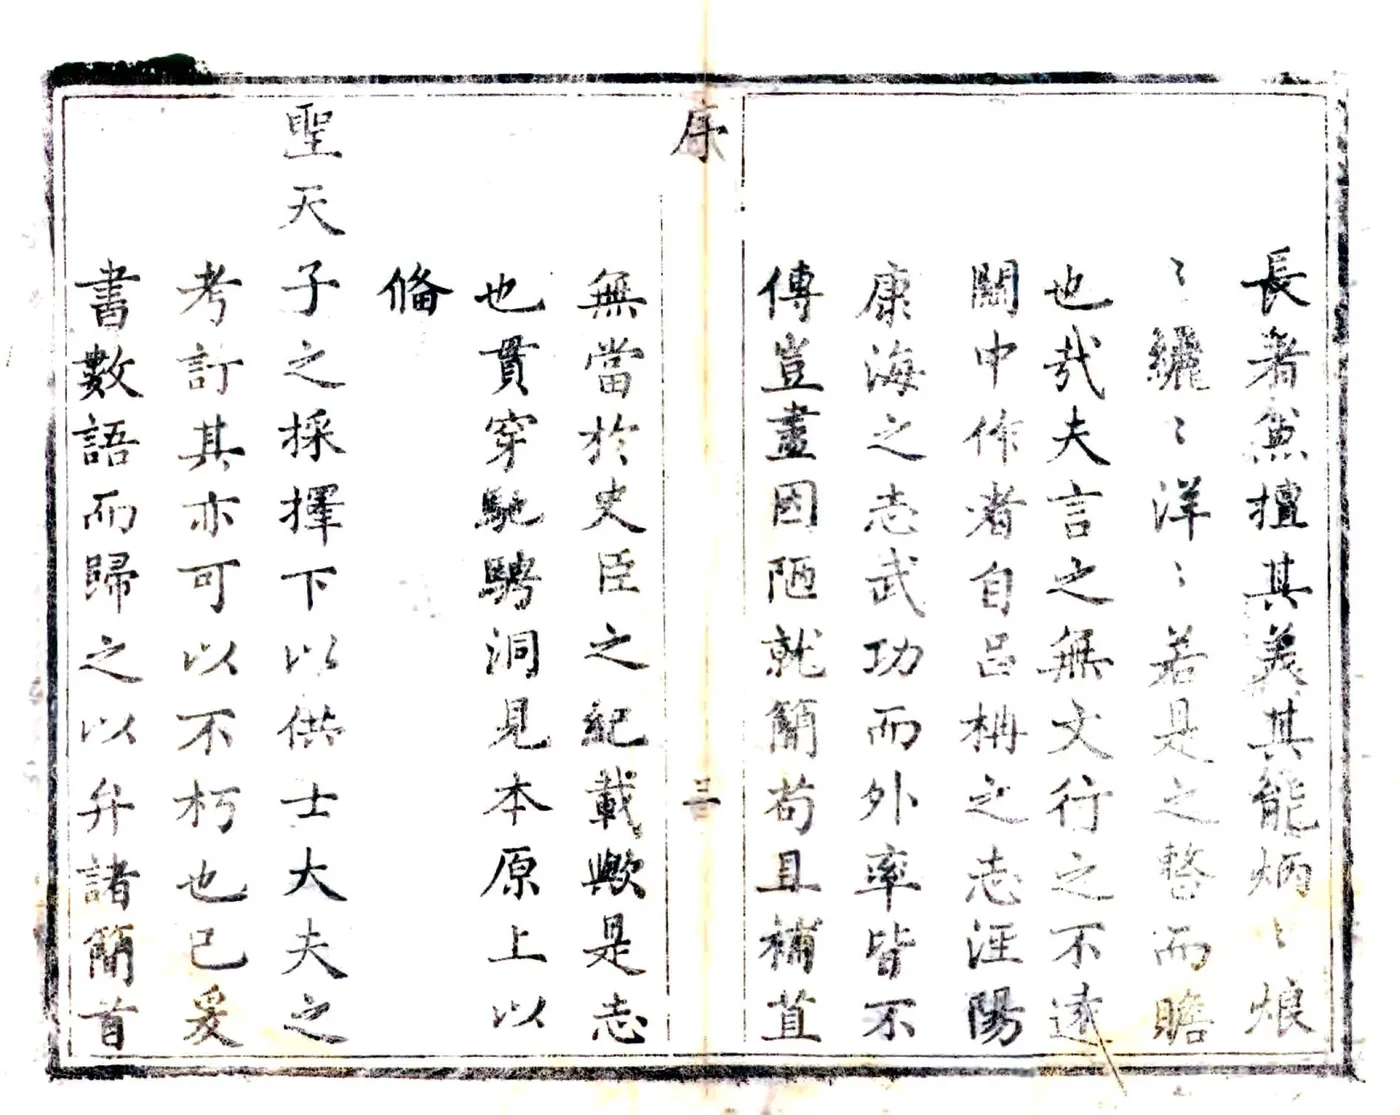 長者兼擅其美其能炳〻烺
〻纚〻洋〻若是之整而贍
也哉夫言之無文行之不遠
關中作者自呂柟之志涇陽
康海之志武功而外率皆不
傳豈盡因陋就簡苟且補苴
序 三
無當於史臣之紀載歟是志
也貫穿馳騁洞見本原上以
俻
聖天子之採擇下以供士大夫之
考訂其亦可以不朽也已爰
書數語而歸之以弁諸簡首